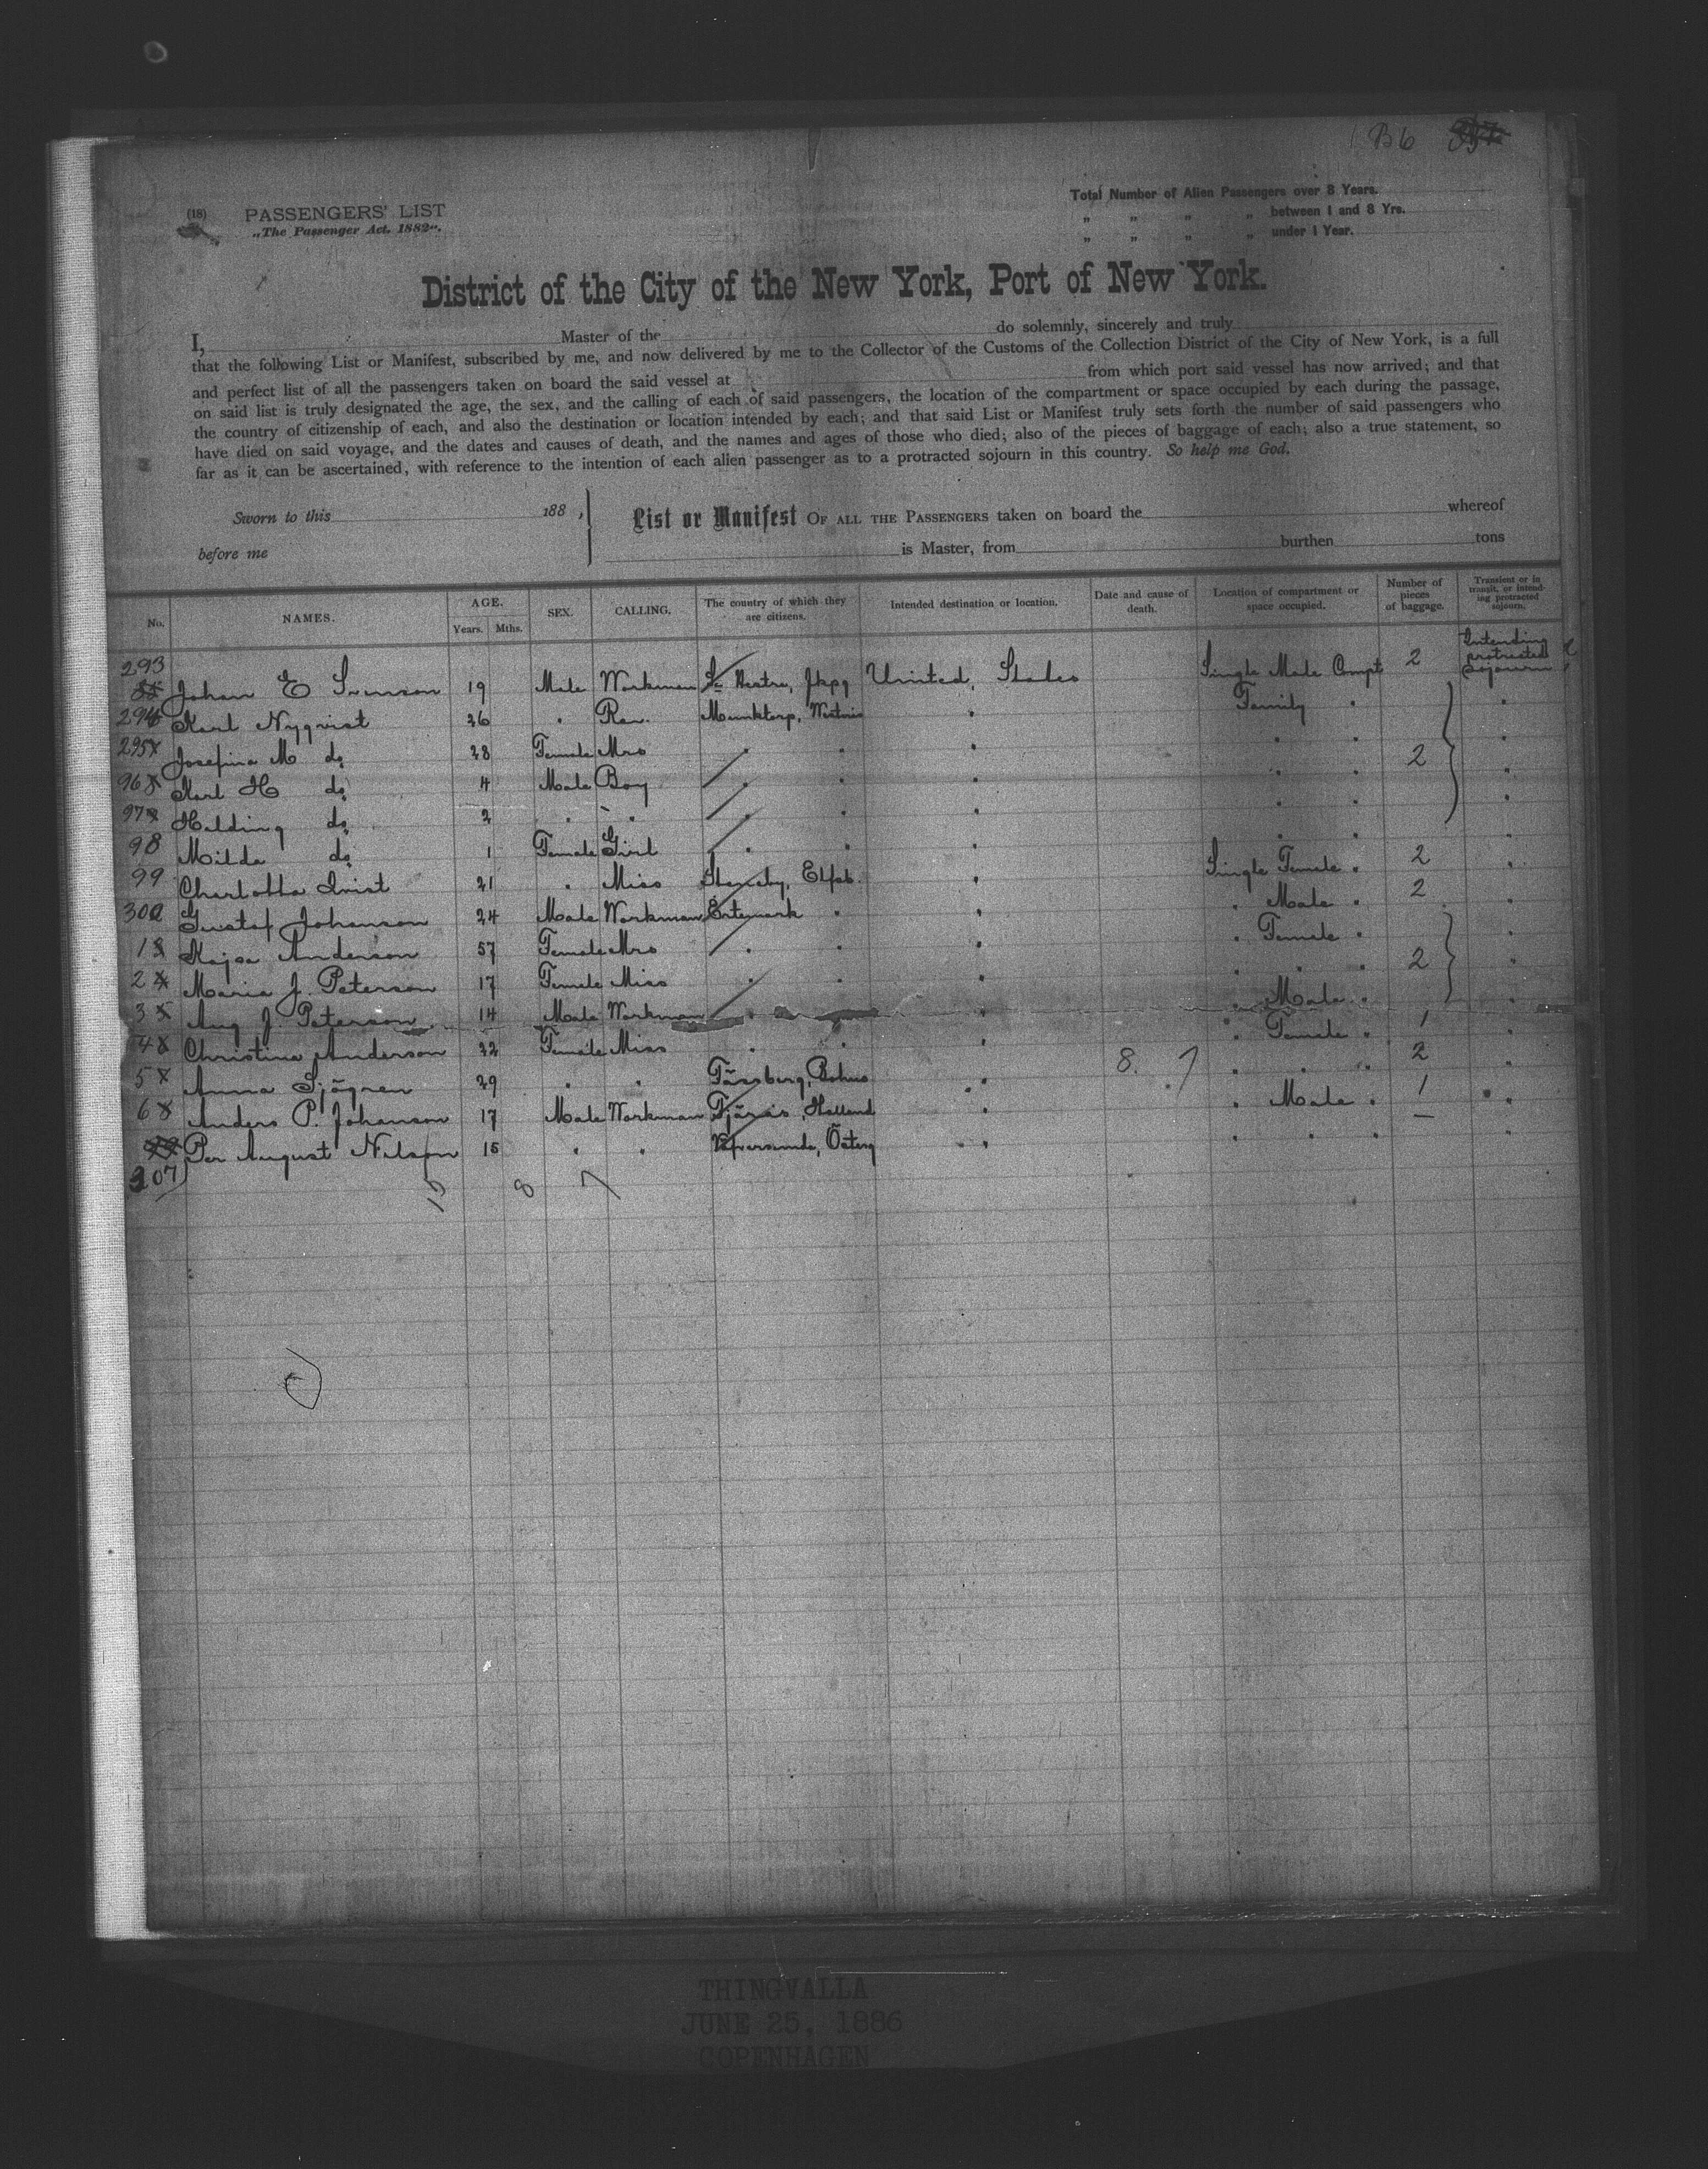 B6
(18) PASSENGERS' LIST
„The Passenger Act. 1882".
Total Number of Alien Passengers over 8 Years.
„ „ „ „ between 1 and 8 Yrs.
„ „ „ „ under 1 Year.
District of the City of the New York, Port of New York.
I, Master of the do solemnly, sincerely and truly
that the following List or Manifest, subscribed by me, and now delivered by me to the Collector of the Customs of the Collection District of the City of New York, is a full
and perfect list of all the passengers taken on board the said vessel at from which port said vessel has now arrived; and that
on said list is truly designated the age, the sex, and the calling of each of said passengers, the location of the compartment or space occupied by each during the passage,
the country of citizenship of each, and also the destination or location intended by each; and that said List or Manifest truly sets forth the number of said passengers who
have died on said voyage, and the dates and causes of death, and the names and ages of those who died; also of the pieces of baggage of each; also a true statement, so
far as it can be ascertained, with reference to the intention of each alien passenger as to a protracted sojourn in this country. So help me God.
Sworn to this 188 ,
before me
List or Manifest OF ALL THE PASSENGERS taken on board the whereof
is Master, from burthen tons
No. NAMES. AGE. Years. Mths. SEX. CALLING. The country of which they are citizens. Intended destination or location. Date and cause of death. Location of compartment or space occupied. Number of pieces of baggage. Transient or in transit, or intending protracted sojourn.
293 Johan E Svenson 19 Male Workman Jkpg United States Single Male Compt 2 Intending protracted Sojourn
294 Karl Nyqvist 26 " Rev. Munktorp, Family " "
295 Josefina M do 28 Female Mrs " " " " " "
96 Karl H do 4 Male Boy " " " " " 2 "
97 Helding do 2 " " " " " " " "
98 Milda do 1 Female Girl " " " " " "
99 Charlotta Qvist 21 " Miss Steneby, Elfsb. " Single Female " 2 "
300 Gustaf Johanson 24 Male Workman Ertemark " " " Male " 2 "
1 Kajsa Anderson 57 Female Mrs " " " " Female " "
2 Maria J. Peterson 17 Female Miss " " " " " " 2 "
3 Aug J. Peterson 14 Male Workman " " " " Male " "
4 Christina Anderson 22 Female Miss " " " " Female " 1 "
5 Anna Sjögren 29 " " Fässberg, Bohus " 8. 7 " " " 2 "
6 Anders P. Johanson 17 Male Workman Fjärås, Halland " " Male " 1 "
307 Per August Nilson 15 " " Östерg " " " " — "
15 8 7
THINGVALLA
JUNE 25, 1886
COPENHAGEN